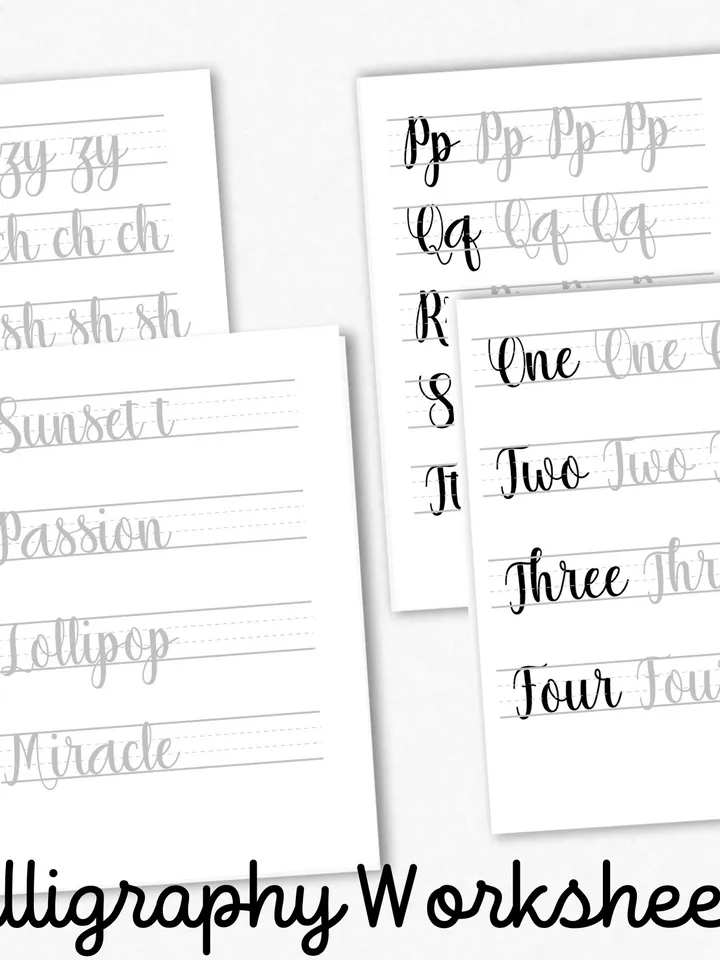 zy zy
ch ch ch
sh sh sh
Sunset t
Passion
Lollipop
Miracle
Pp Pp Pp Pp
Qq Qq Qq
R
S
Tt
One One
Two Two
Three Thr
Four Four
lligraphy Workshee